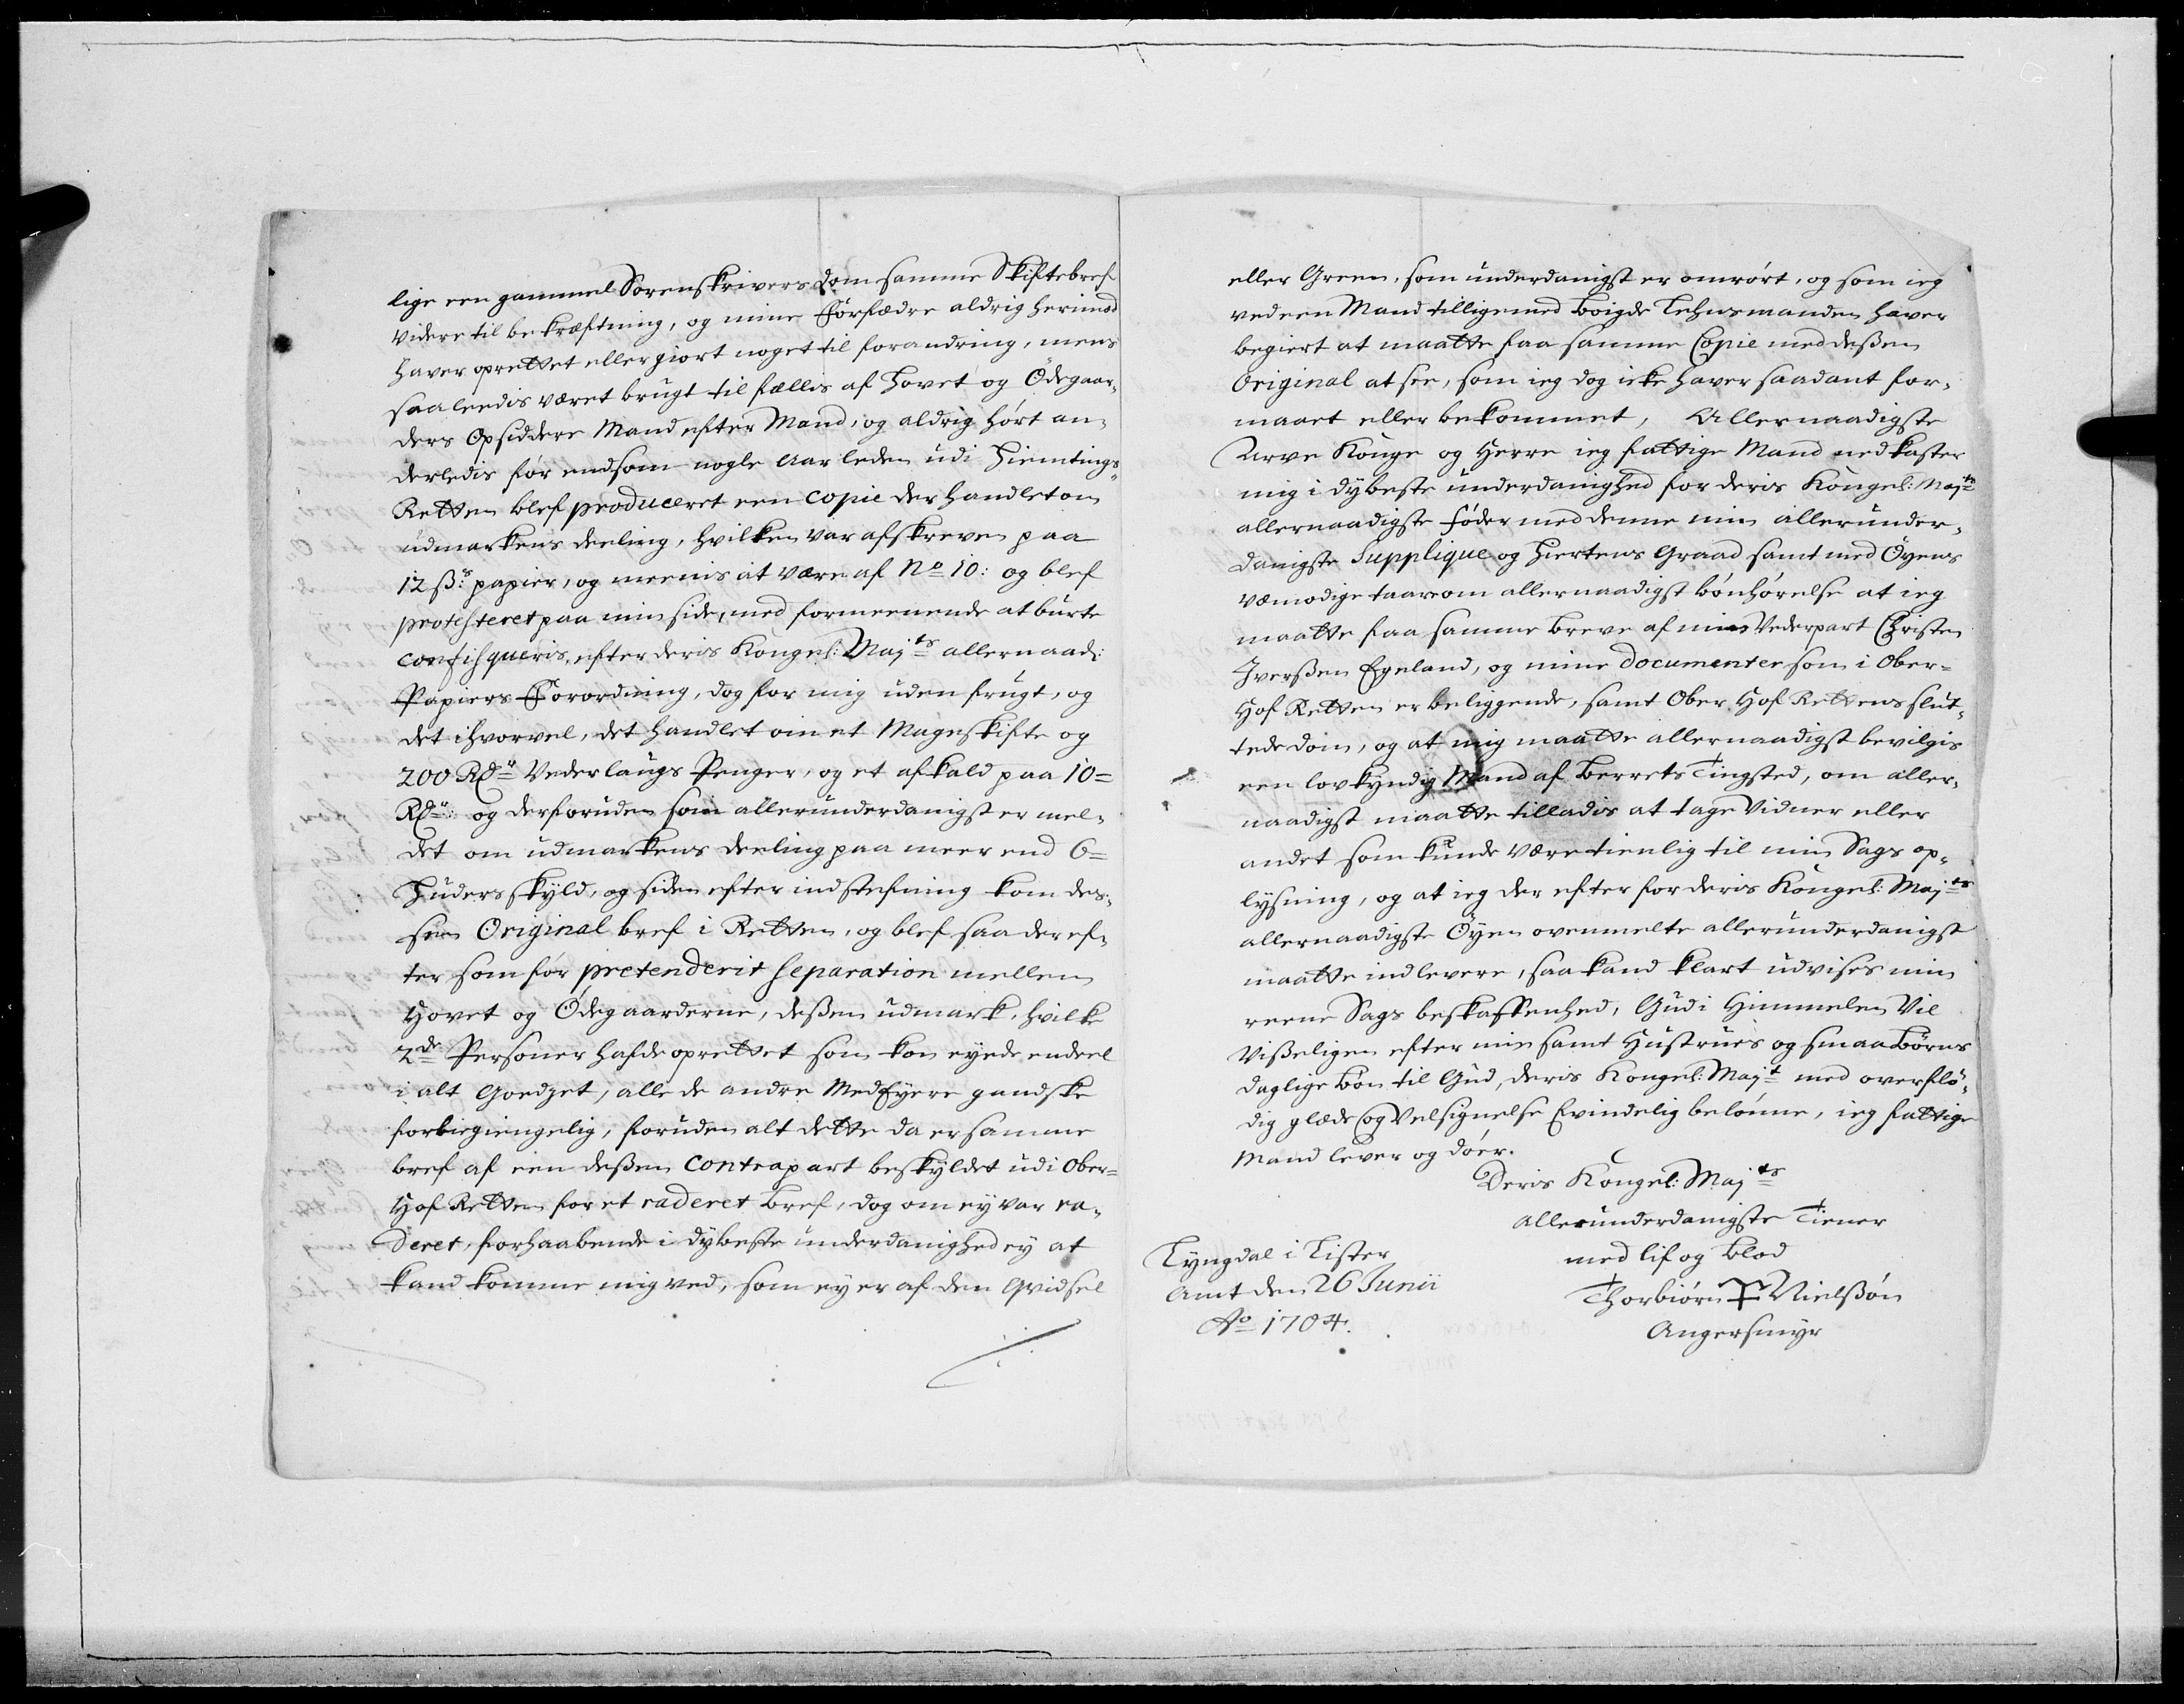 lige een gammel Sorenskrivers dom samme Skiftebref
videre til bekræftning, og mine Forfædre aldrig herimod
haver oprettet eller giort noget til forandring, mens
saaleedis været brugt til fællis af Hovet og Ödegaar-
ders Opsiddere Mand efter Mand, og aldrig hört an-
derledis för end som nogle Aar leden udi Hiemtings-
Retten blef produceret een Copie der handlet om
udmarkens deeling, hvilken var afskreven paa
12 ß:s papier, og meenis at være af No 10: og blef
protesteret paa min side, med formeenende at burte
confisqueris, efter deris Kongel: Majts allernaad:
Papiers Forordning, dog for mig uden frugt, og
det ihvorvel, det handlet om et Mageskifte og
200 Rdr Vederlaugs Penger, og et afkald paa 10=
Rdr: og derforuden som allerunderdanigst er mel-
det om udmarkens deeling paa meer end 6=
Huders skyld, og siden efter indstefning kom des-
sen Original bref i Retten, og blef saa deref-
ter som for pretenderit separation mellem
Hovet og Ödegaarderne, deßen udmark, hvilke
2de Personer hafde oprettet som kon eyede endeel
i alt Goedzet, alle de andre MedEyere gandske
forbiegiengelig, foruden alt dette da er samme
bref af een deßen Contrapart beskyldet udi Ober-
Hof Retten for et raderet bref, dog om ey var ra-
deret, forhaabende i dybeste underdanighed ey at
kand komme mig ved, som ey er af den Qvidsel
eller Green, som underdanigst er omrört, og som ieg
ved een Mand tilligemed boigde Lehnsmanden haver
begiert at maatte faa samme Copie med deßen
Original at see, som ieg dog icke haver saadant for-
maaet eller bekommet, Allernaadigste
Arve Konge og Herre ieg fattige Mand nedkaster
mig i dybeste underdanighed for deris Kongel: Majts
allernaadigste födder med denne min allerunder-
danigste Supplique og Hiertens Graad samt med Öyens
vemodige taare om allernaadigst bönhörelse at ieg
maatte faa samme breve af min Vederpart Christen
Iverßen Egeland, og mine documenter som i Ober-
Hof Retten er beliggende, samt Ober Hof Rettens slut-
tede dom, og at mig maatte allernaadigst bevilgis
een lovkyndig Mand af Berrets Tingsted, om aller-
naadigst maatte tilladis at tage Vidner eller
andet som kunde være tienlig til min Sags op-
lysning, og at ieg der efter for deris Kongel: Majts
allernaadigste Öyen ovenmelte allerunderdanigst
maatte indlevere, saa kand klart udvises min
reene Sags beskaffenhed, Gud i Himmelen Vil
Vißeligen efter min samt Hustrues og smaa Börns
daglige bön til Gud, deris Kongel: Majt med overflö-
dig glæde og Velsignelse Evindelig belönne, ieg fattige
Mand lever og döer.
Deris Kongel: Majts
allerunderdanigste Tiener
med lif og blod
Thorbiörn Nielßön
Angersmyr
Lyngdal i Lister
Amt den 26 Junii
Ao 1704.